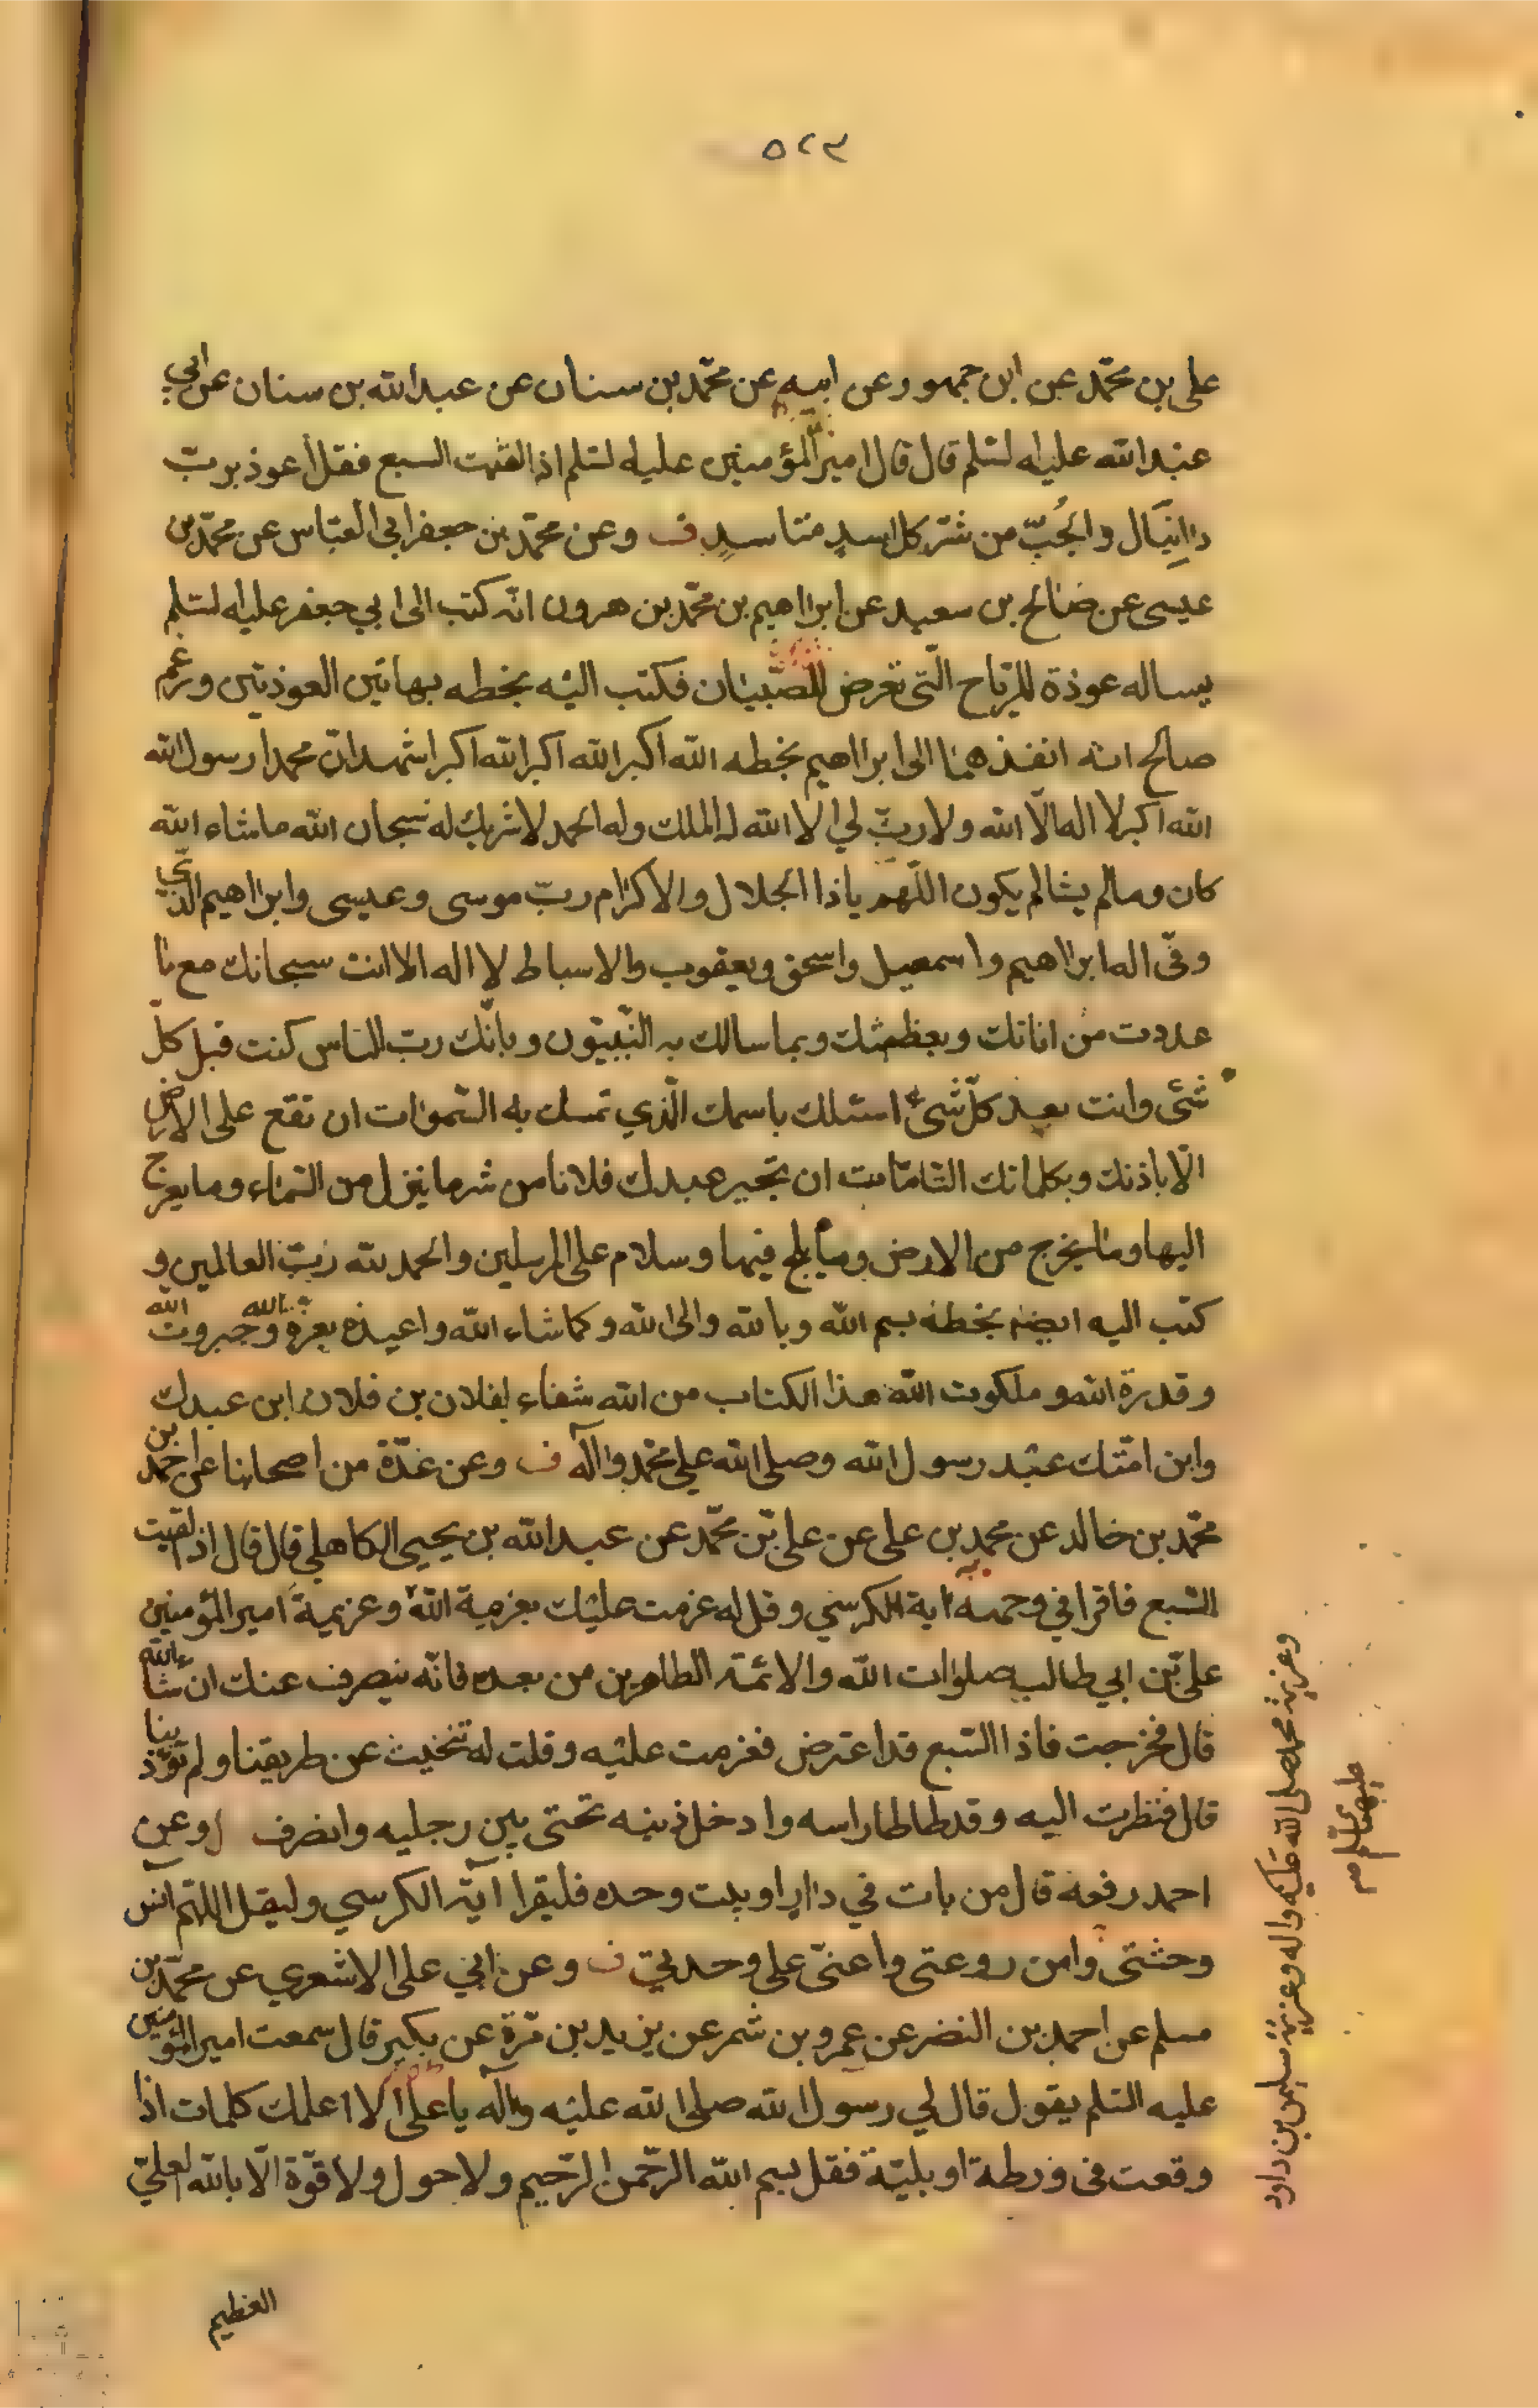 ٥٢٣
علي بن محمّد عن ابن جمهور عن ابيه عن محمّد بن سنان عن عبد الله بن سنان عن ابي
عبد الله عليه السلم قال قال امير المؤمنين عليه السلم اذا لقيت السبع فقل أعوذ برب
دانيال والجُبّ من شر كل اسدٍ مستأسدٍ ف وعن محمّد بن جعفر ابي العباس عن محمّد بن
عيسى عن صالح بن سعيد عن ابراهيم بن محمّد بن هرون انه كتب الى ابي جعفر عليه السلم
يساله عوذة للرياح الّتي تعرض للصّبيان فكتب اليه بخطه بهاتين العوذتين وزعم
صالح انه انفذهما الى ابراهيم بخطه الله اكبر الله اكبر الله اكبر اشهد انّ محمدا رسول الله
الله اكبر لا اله الّا الله ولا ربّ لي الا الله له الملك وله الحمد لا شريك له سبحان الله ما شاء الله
كان وما لم يشا لم يكون اللّهم يا ذا الجلال والاكرام ربّ موسى وعيسى وابراهيم الّذي
وفّى اله ابراهيم واسمعيل واسحق ويعقوب والاسباط لا اله الا انت سبحانك مع ما
عددت من اياتك وبعظمتك وبما سالك به النّبيّون وبانّك رب الناس كنت قبل كلّ
شئ وانت بعد كلّ شئ اسئلك باسمك الّذي تمسك به السّموات ان تقع على الارض
الّا باذنك وبكلماتك التّامّات ان تجير عبدك فلانا من شر ما ينزل من السّماء وما يعرج
اليها وما يخرج من الارض وما يلج فيها وسلام على المرسلين والحمد لله ربّ العالمين و
كتب اليه ايضا بخطه بسم الله وبالله والى الله وكما شاء الله واعيذه بعزة الله وجبروت الله
وقدرة الله وملكوت الله هذا الكتاب من الله شفاء لفلان بن فلان ابن عبدك
وابن امتك عبد رسول الله وصلى الله على محمّد واله ف وعن عدّة من اصحابنا عن احمد بن
محمّد بن خالد عن محمد بن علي عن علي بن محمّد عن عبد الله بن يحيى الكاهلي قال قال اذا لقيت
السّبع فاقرا في وجهه اية الكرسي وقل له عزمت عليك بعزيمة الله وعزيمة امير المؤمنين
علي بن ابي طالب صلوات الله والائمة الطاهرين من بعده فانّه ينصرف عنك ان شاء الله
قال فخرجت فاذا السّبع قد اعترض فعزمت عليه وقلت له تنحيت عن طريقنا ولم تؤذينا
قال فنظرت اليه وقد طاطا راسه وادخل ذنبه تحتى بين رجليه وانصرف وعن
احمد رفعه قال من بات في دار او بيت وحده فليقرا آية الكرسي وليقل اللهم آنس
وحشتى وامن روعتى واعنّى على وحدتي ف وعن ابي علي الاشعري عن محمّد بن
مسلم عن احمد بن النضر عن عمرو بن شمر عن يزيد بن مرّة عن بكير قال سمعت امير المؤمنين
عليه السّلم يقول قال لي رسول الله صلى الله عليه وآله يا علي الا اعلمك كلمات اذا
وقعت في ورطة او بليّة فقل بسم الله الرّحمن الرّحيم ولا حول ولا قوّة الّا بالله العليّ
العظيم
وعزيمة محمد صلى الله عليه واله وعزيمة سليمن بن داود
عليهما السلم